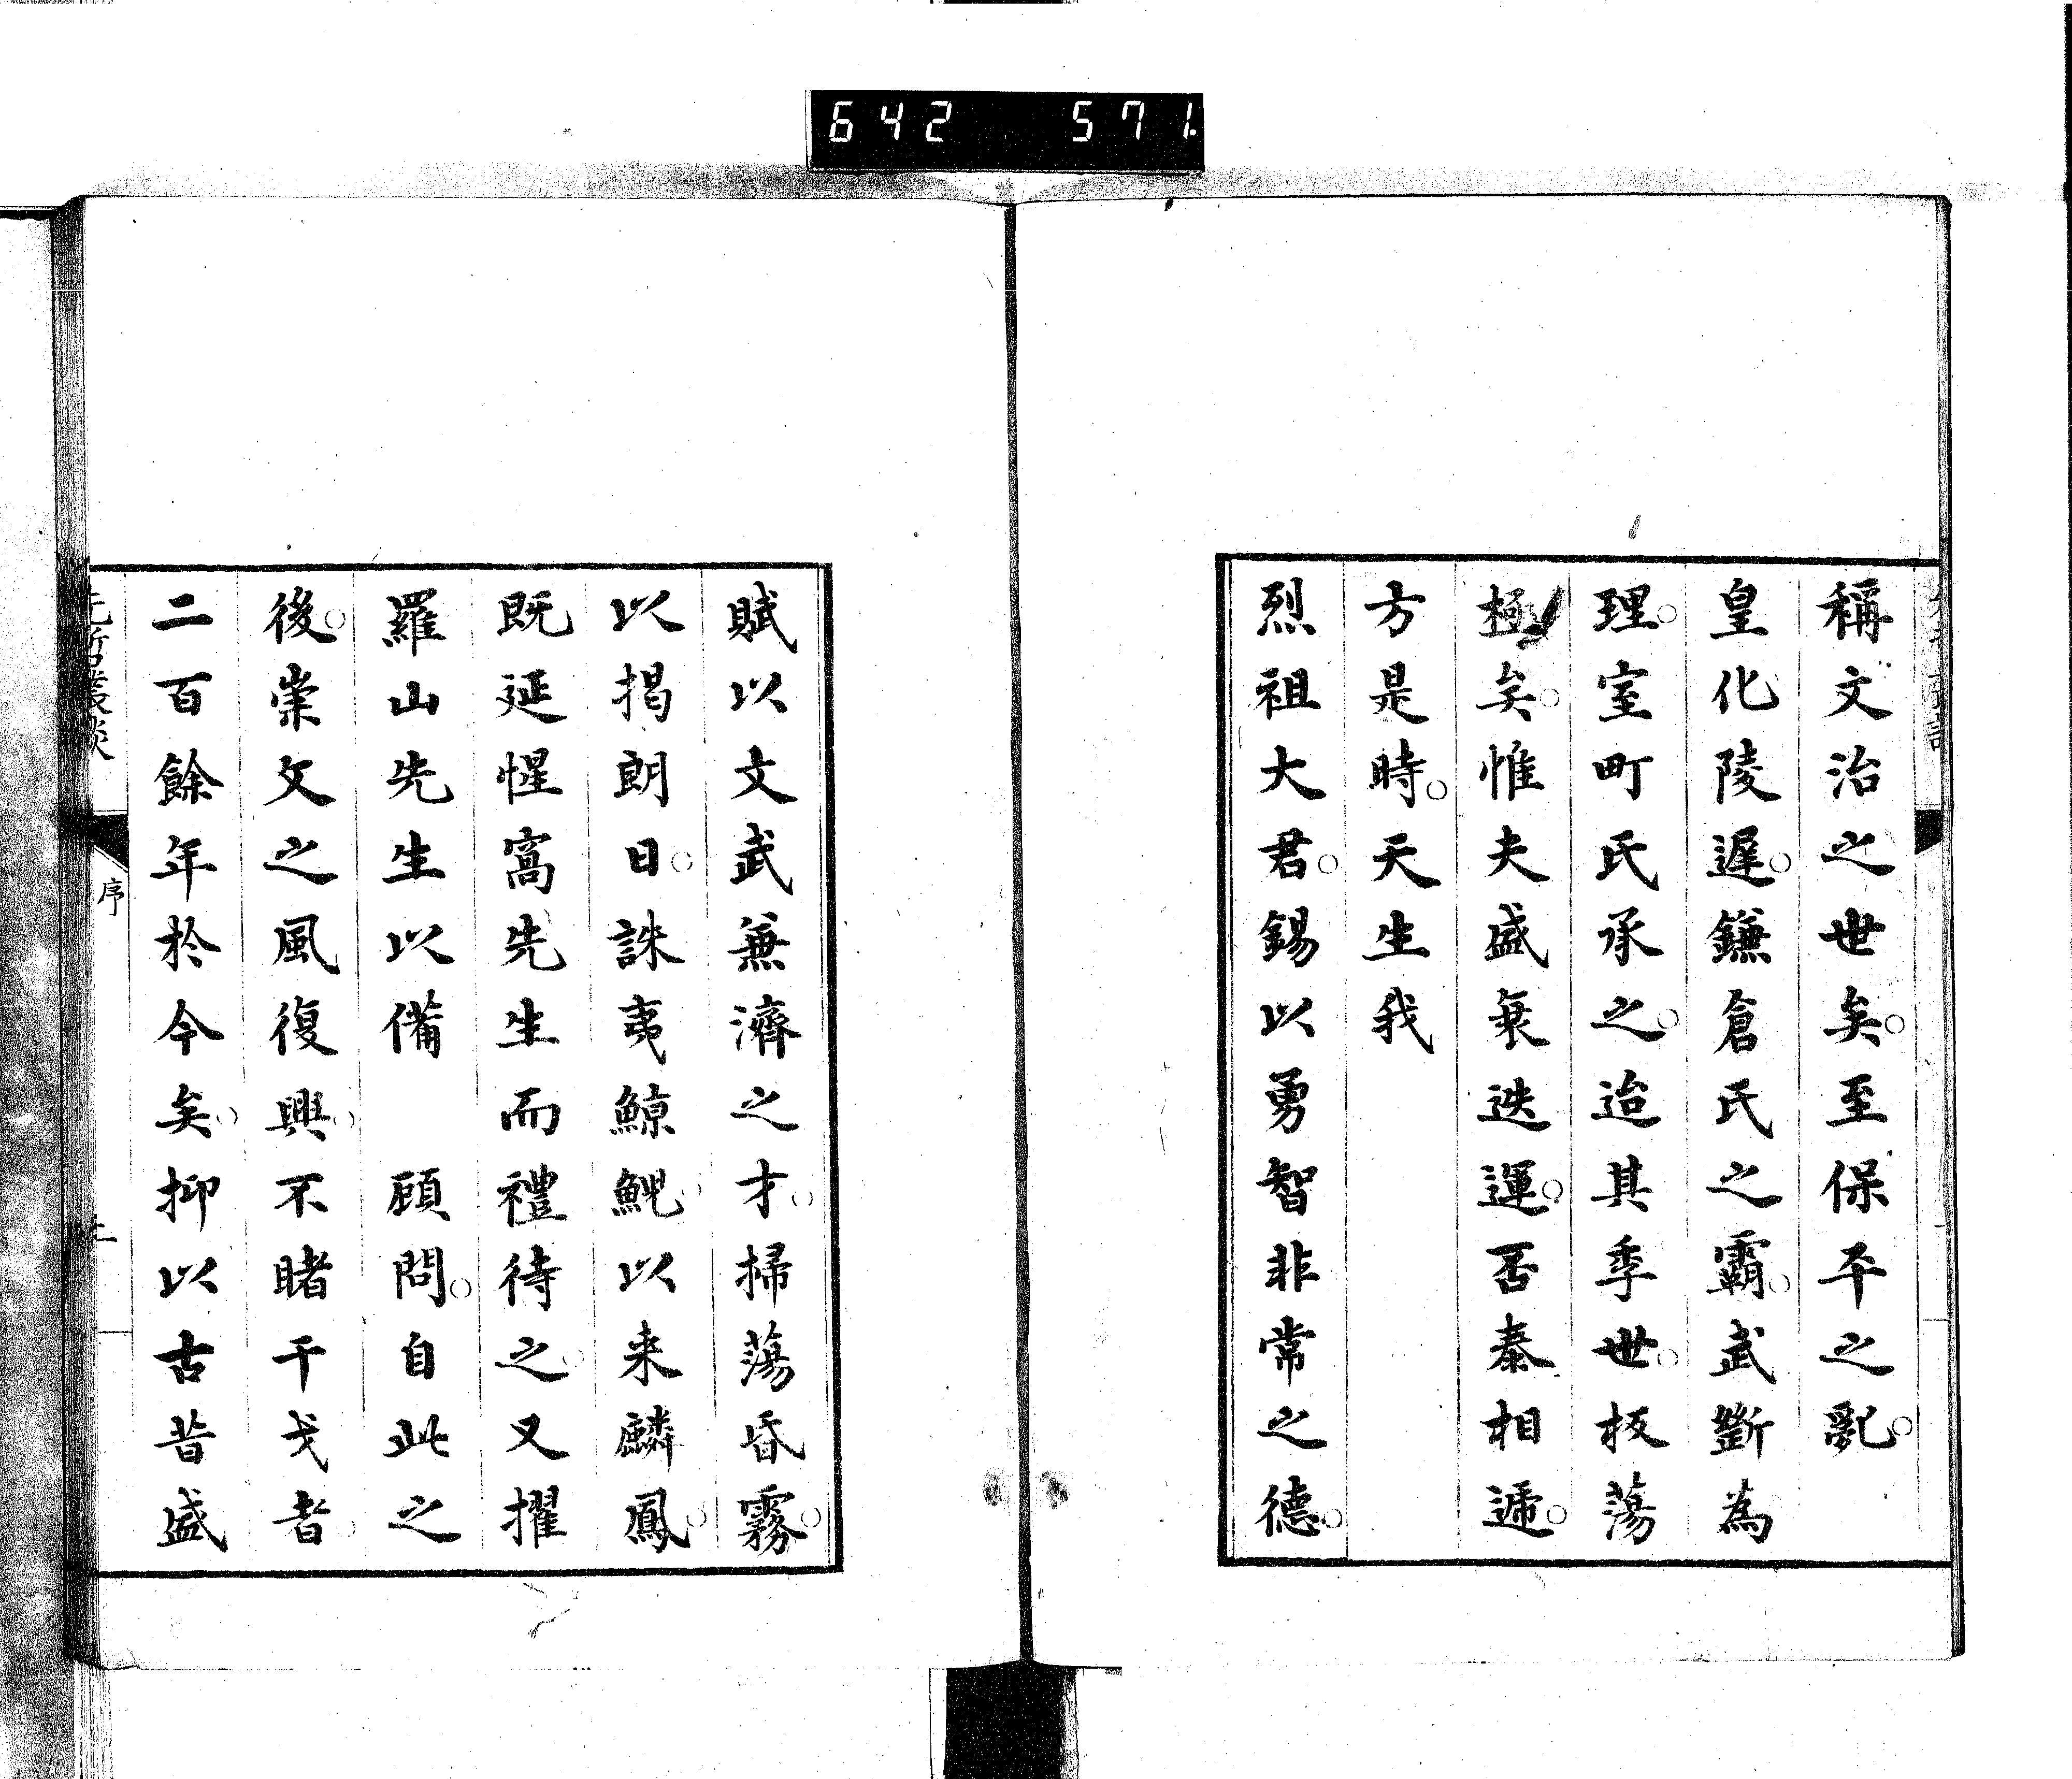 642 571.
稱文治之世矣。至保平之亂。
皇化陵遲。鎌倉氏之霸。武斷為
理。室町氏承之。迨其季世。板蕩
極矣。惟夫盛衰迭運。否泰相遞。
方是時。天生我
烈祖大君。錫以勇智非常之德。
賦以文武兼濟之才。掃蕩昏霧。
以揭朗日。誅夷鯨鯢。以来麟鳳。
既延惺窩先生而禮待之。又擢
羅山先生以備　顧問。自此之
後。崇文之風復興。不睹干戈者。
二百餘年於今矣。抑以古昔盛
先哲叢談
序